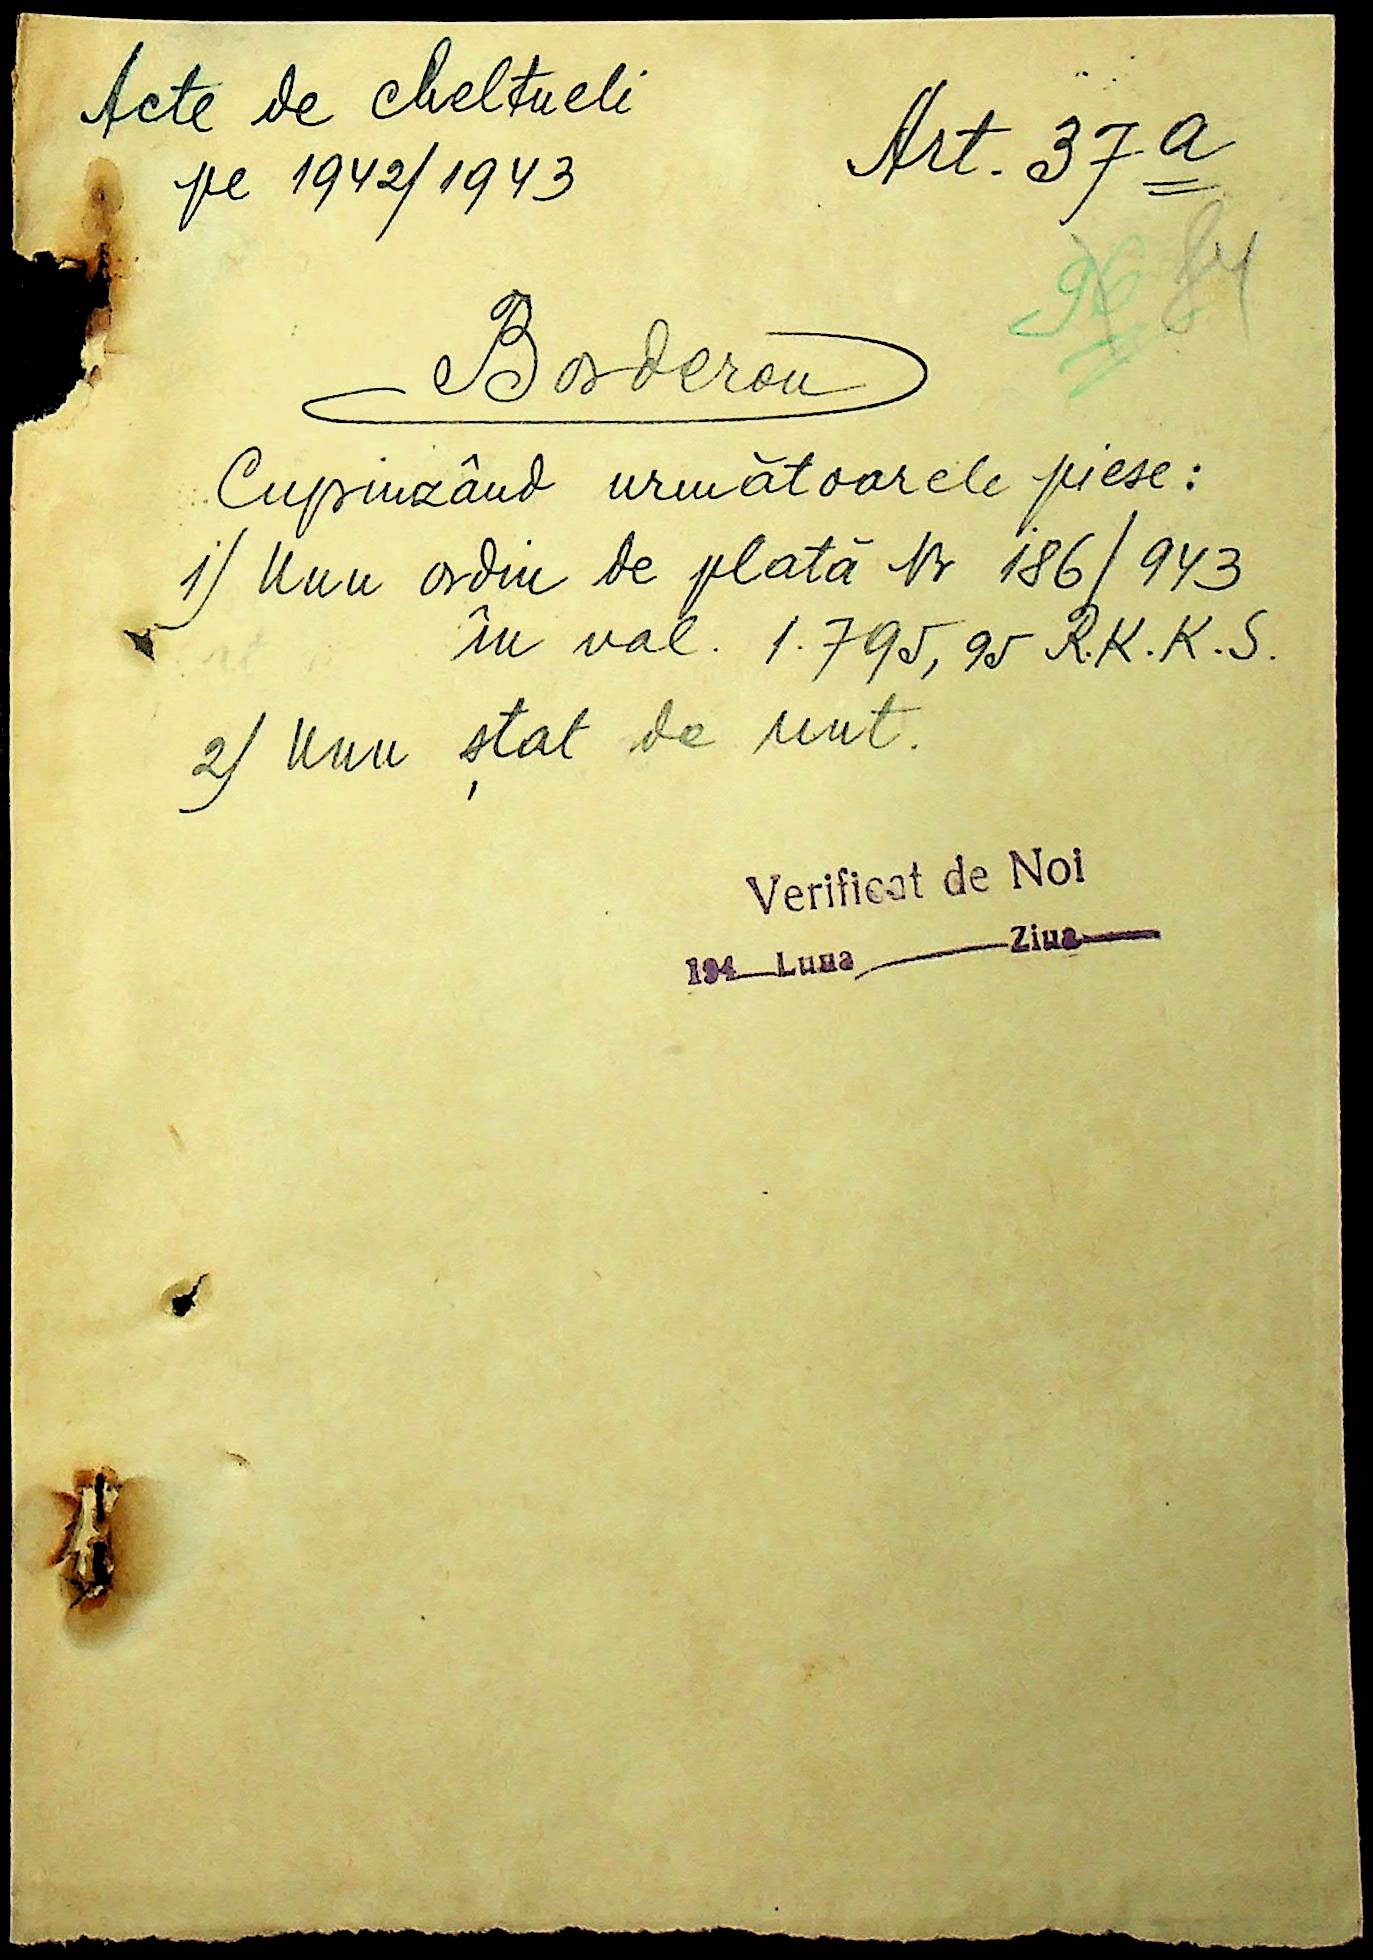 Acte de cheltueli
pe 1942/1943
Art. 37 a
96 84
Borderou
Cuprinzând următoarele piese:
1) Unu ordin de plată Nr 186/943
în val. 1.795,95 R.K.K.S.
2) Unu ștat de unt.
Verificat de Noi
194 Luna Ziua